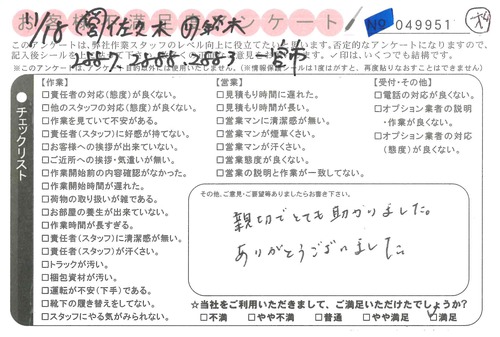 お客様満足アンケート
No 049951
11/18 ㊡佐久木 ㊞鈴木
2887・2888・2883 一宮市
このアンケートは、弊社作業スタッフのレベル向上に役立てたいと思います。否定的なアンケートになりますので、
記入後シールを 結構です。✓印は、いくつでも結構です。
(※情報保護シールは1度はがすと、再度貼りなおすことはできません)
チェックリスト
【作業】
□責任者の対応(態度)が良くない。
□他のスタッフの対応(態度)が良くない。
□作業を見ていて不安がある。
□責任者(スタッフ)に好感が持てない。
□お客様への挨拶が出来ていない。
□ご近所への挨拶・気遣いが無い。
□作業開始前の内容確認がなかった。
□作業開始時間が遅れた。
□荷物の取り扱いが雑である。
□お部屋の養生が出来ていない。
□作業時間が長すぎる。
□責任者(スタッフ)に清潔感が無い。
□責任者(スタッフ)が汗くさい。
□トラックが汚い。
□梱包資材が汚い。
□運転が不安(下手)である。
□靴下の履き替えをしてない。
□スタッフにやる気がみられない。
【営業】
□見積もり時間に遅れた。
□見積もり時間が長い。
□営業マンに清潔感が無い。
□営業マンが煙草くさい。
□営業マンが汗くさい。
□営業態度が良くない。
□営業の説明と作業が一致してない。
【受付・その他】
□電話の対応が良くない。
□オプション業者の説明
・作業が良くない。
□オプション業者の対応
(態度)が良くない。
その他、ご意見・ご要望等ありましたらお書き下さい。
親切でとても助かりました。
ありがとうございました
☆当社をご利用いただきまして、ご満足いただけたでしょうか?
□不満 □やや不満 □普通 □やや満足 ☑満足